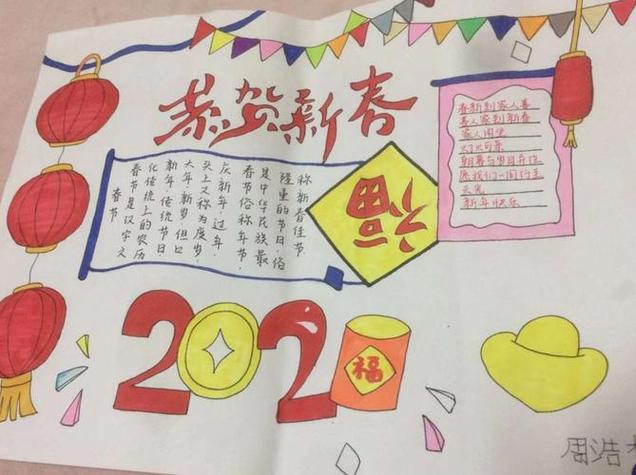 恭贺新春
春节
春节是汉字文
化传统上的农历
新年·传统节日·
大年·新岁·但口
头上又称为度岁·
庆新年·过年·
春节俗称年节·
是中华民族最
隆重的节日·俗
称新春佳节
福
春新到家人喜
喜人家到新春
家人闲坐
灯火可亲
朝暮与岁月并往
愿我们一同行至
天光
新年快乐
202
福
周浩